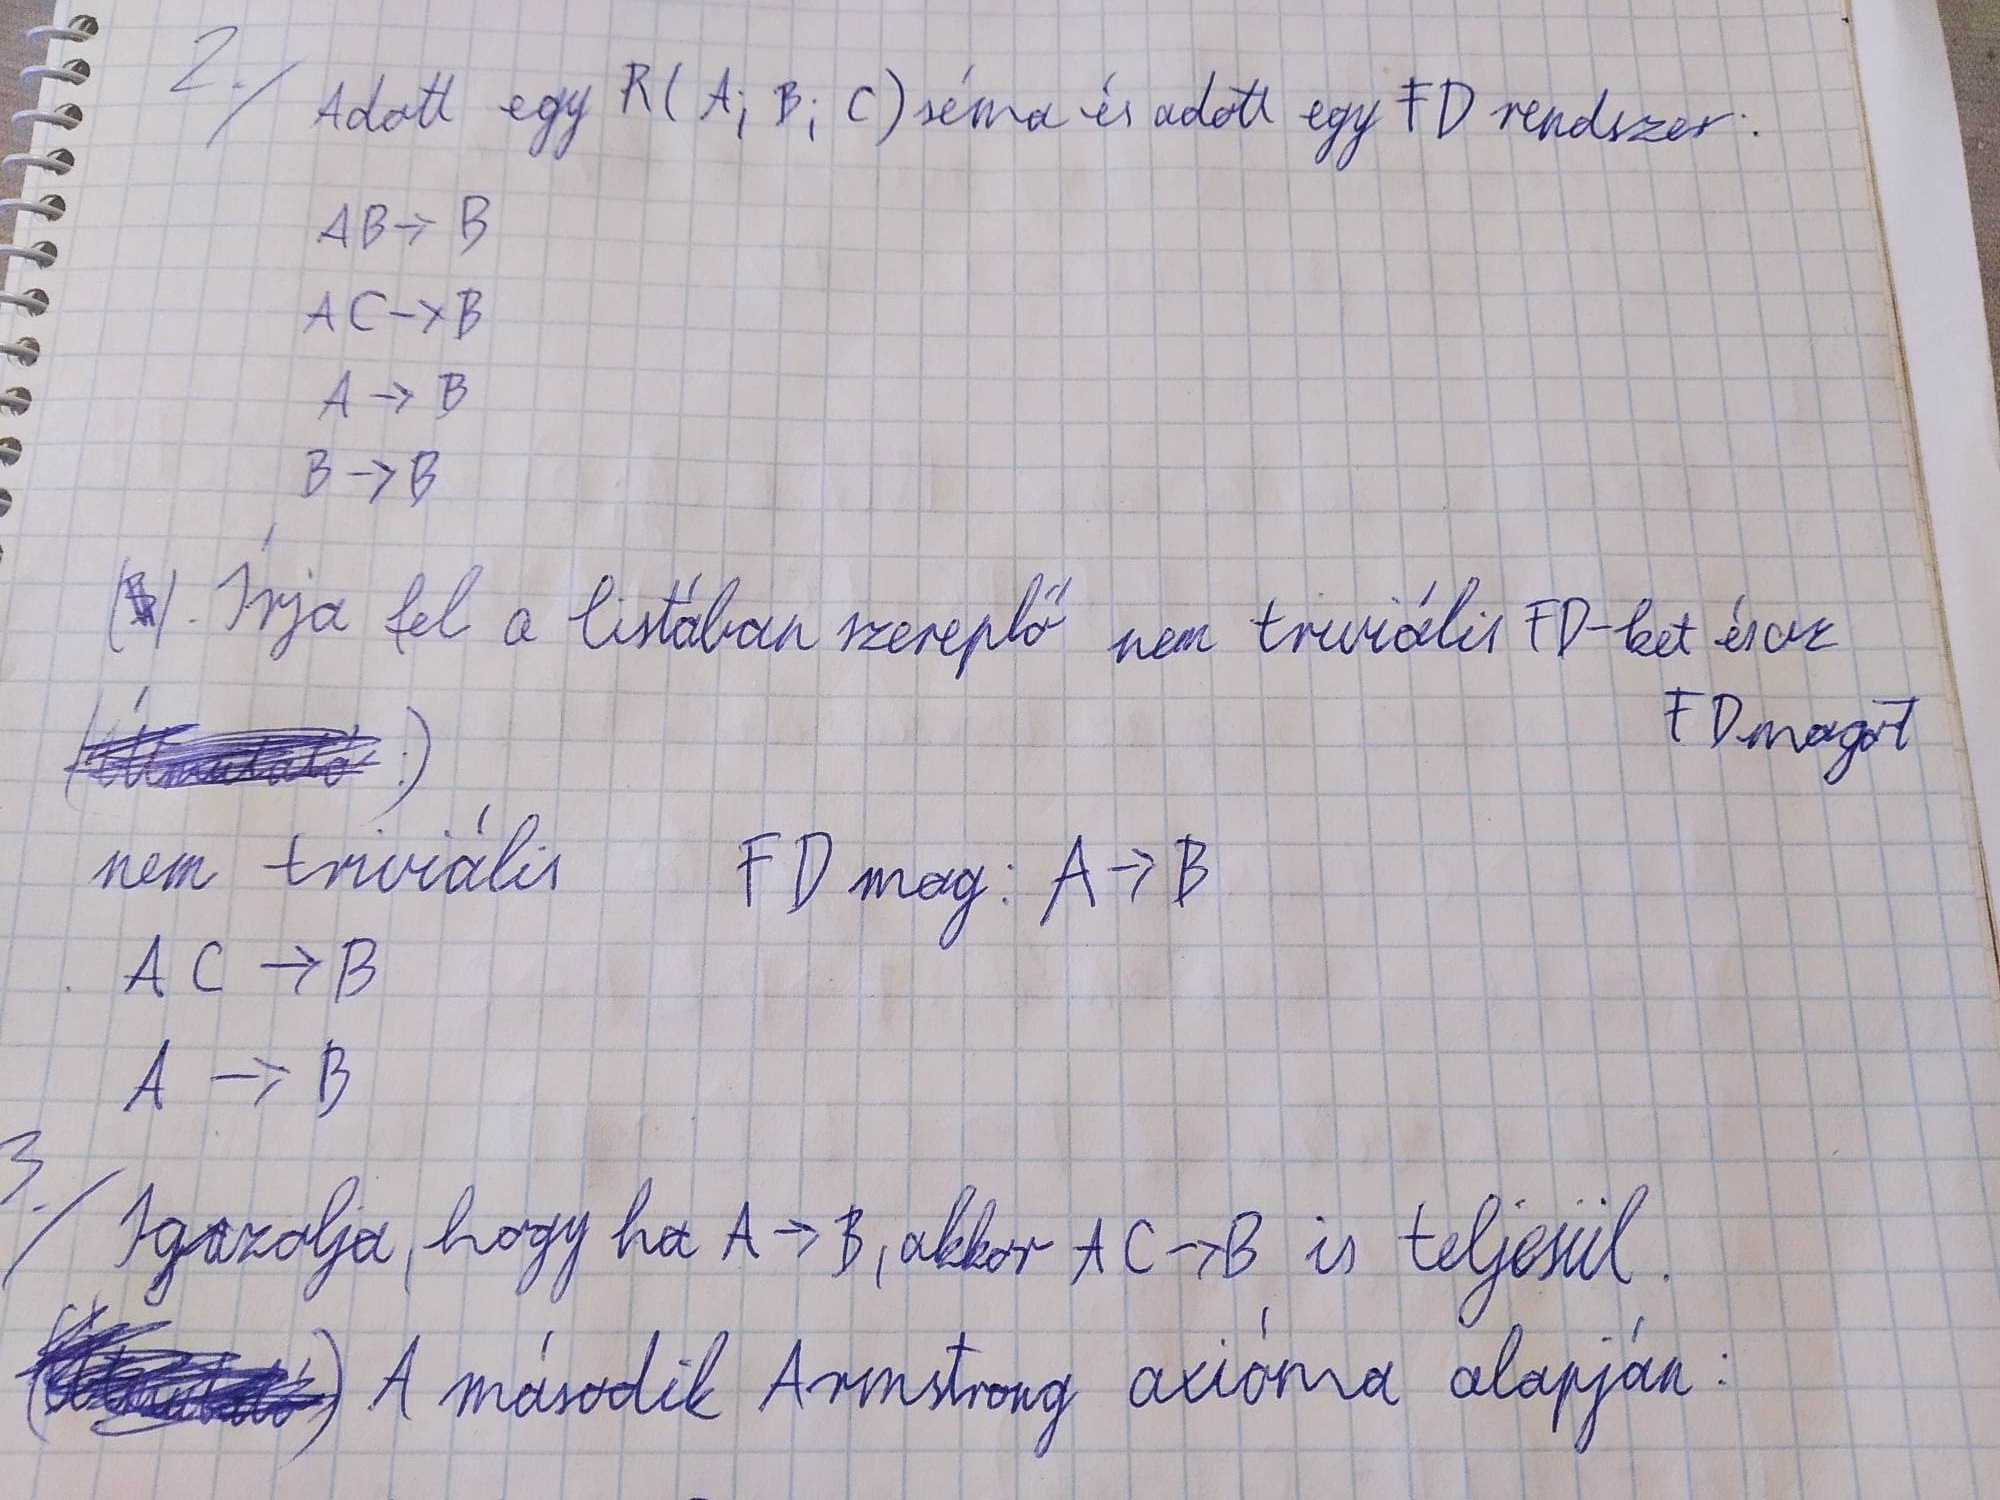 2./ Adott egy R(A; B; C) séma és adott egy FD rendszer:
AB→ B
AC→B
A → B
B →B
Írja fel a listában szereplő nem triviális FD-ket és az
FD magot
nem triviális FD mag: A → B
AC → B
A → B
3./ Igazolja, hogy ha A → B, akkor AC→B is teljesül.
A második Armstrong axióma alapján: